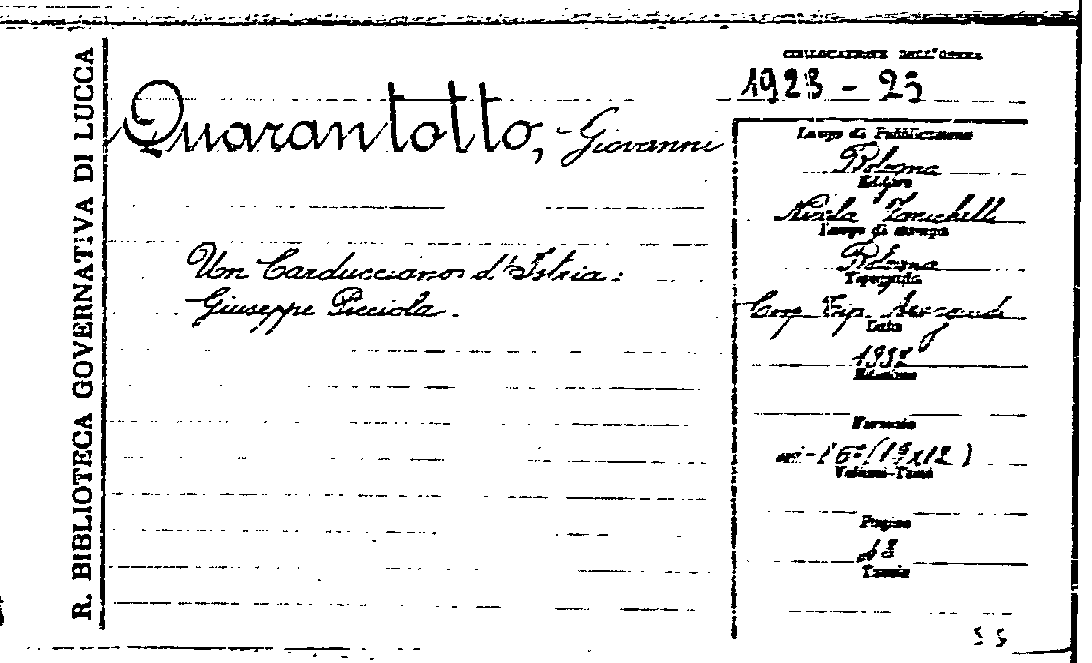 R. BIBLIOTECA GOVERNATIVA DI LUCCA
COLLOCAZIONE DELL'OPERA
1923 - 23
Quarantotto, Giovanni
Un Carducciano d'Istria:
Giuseppe Picciola.
Luogo di Pubblicazione
Bologna
Editore
Nicola Zanichelli
Luogo di stampa
Bologna
Tipografia
Coop. Tip.
Data
1932
Edizione
Formato
in-16º (19x12)
Volumi-Tomi
Pagine
Tavole